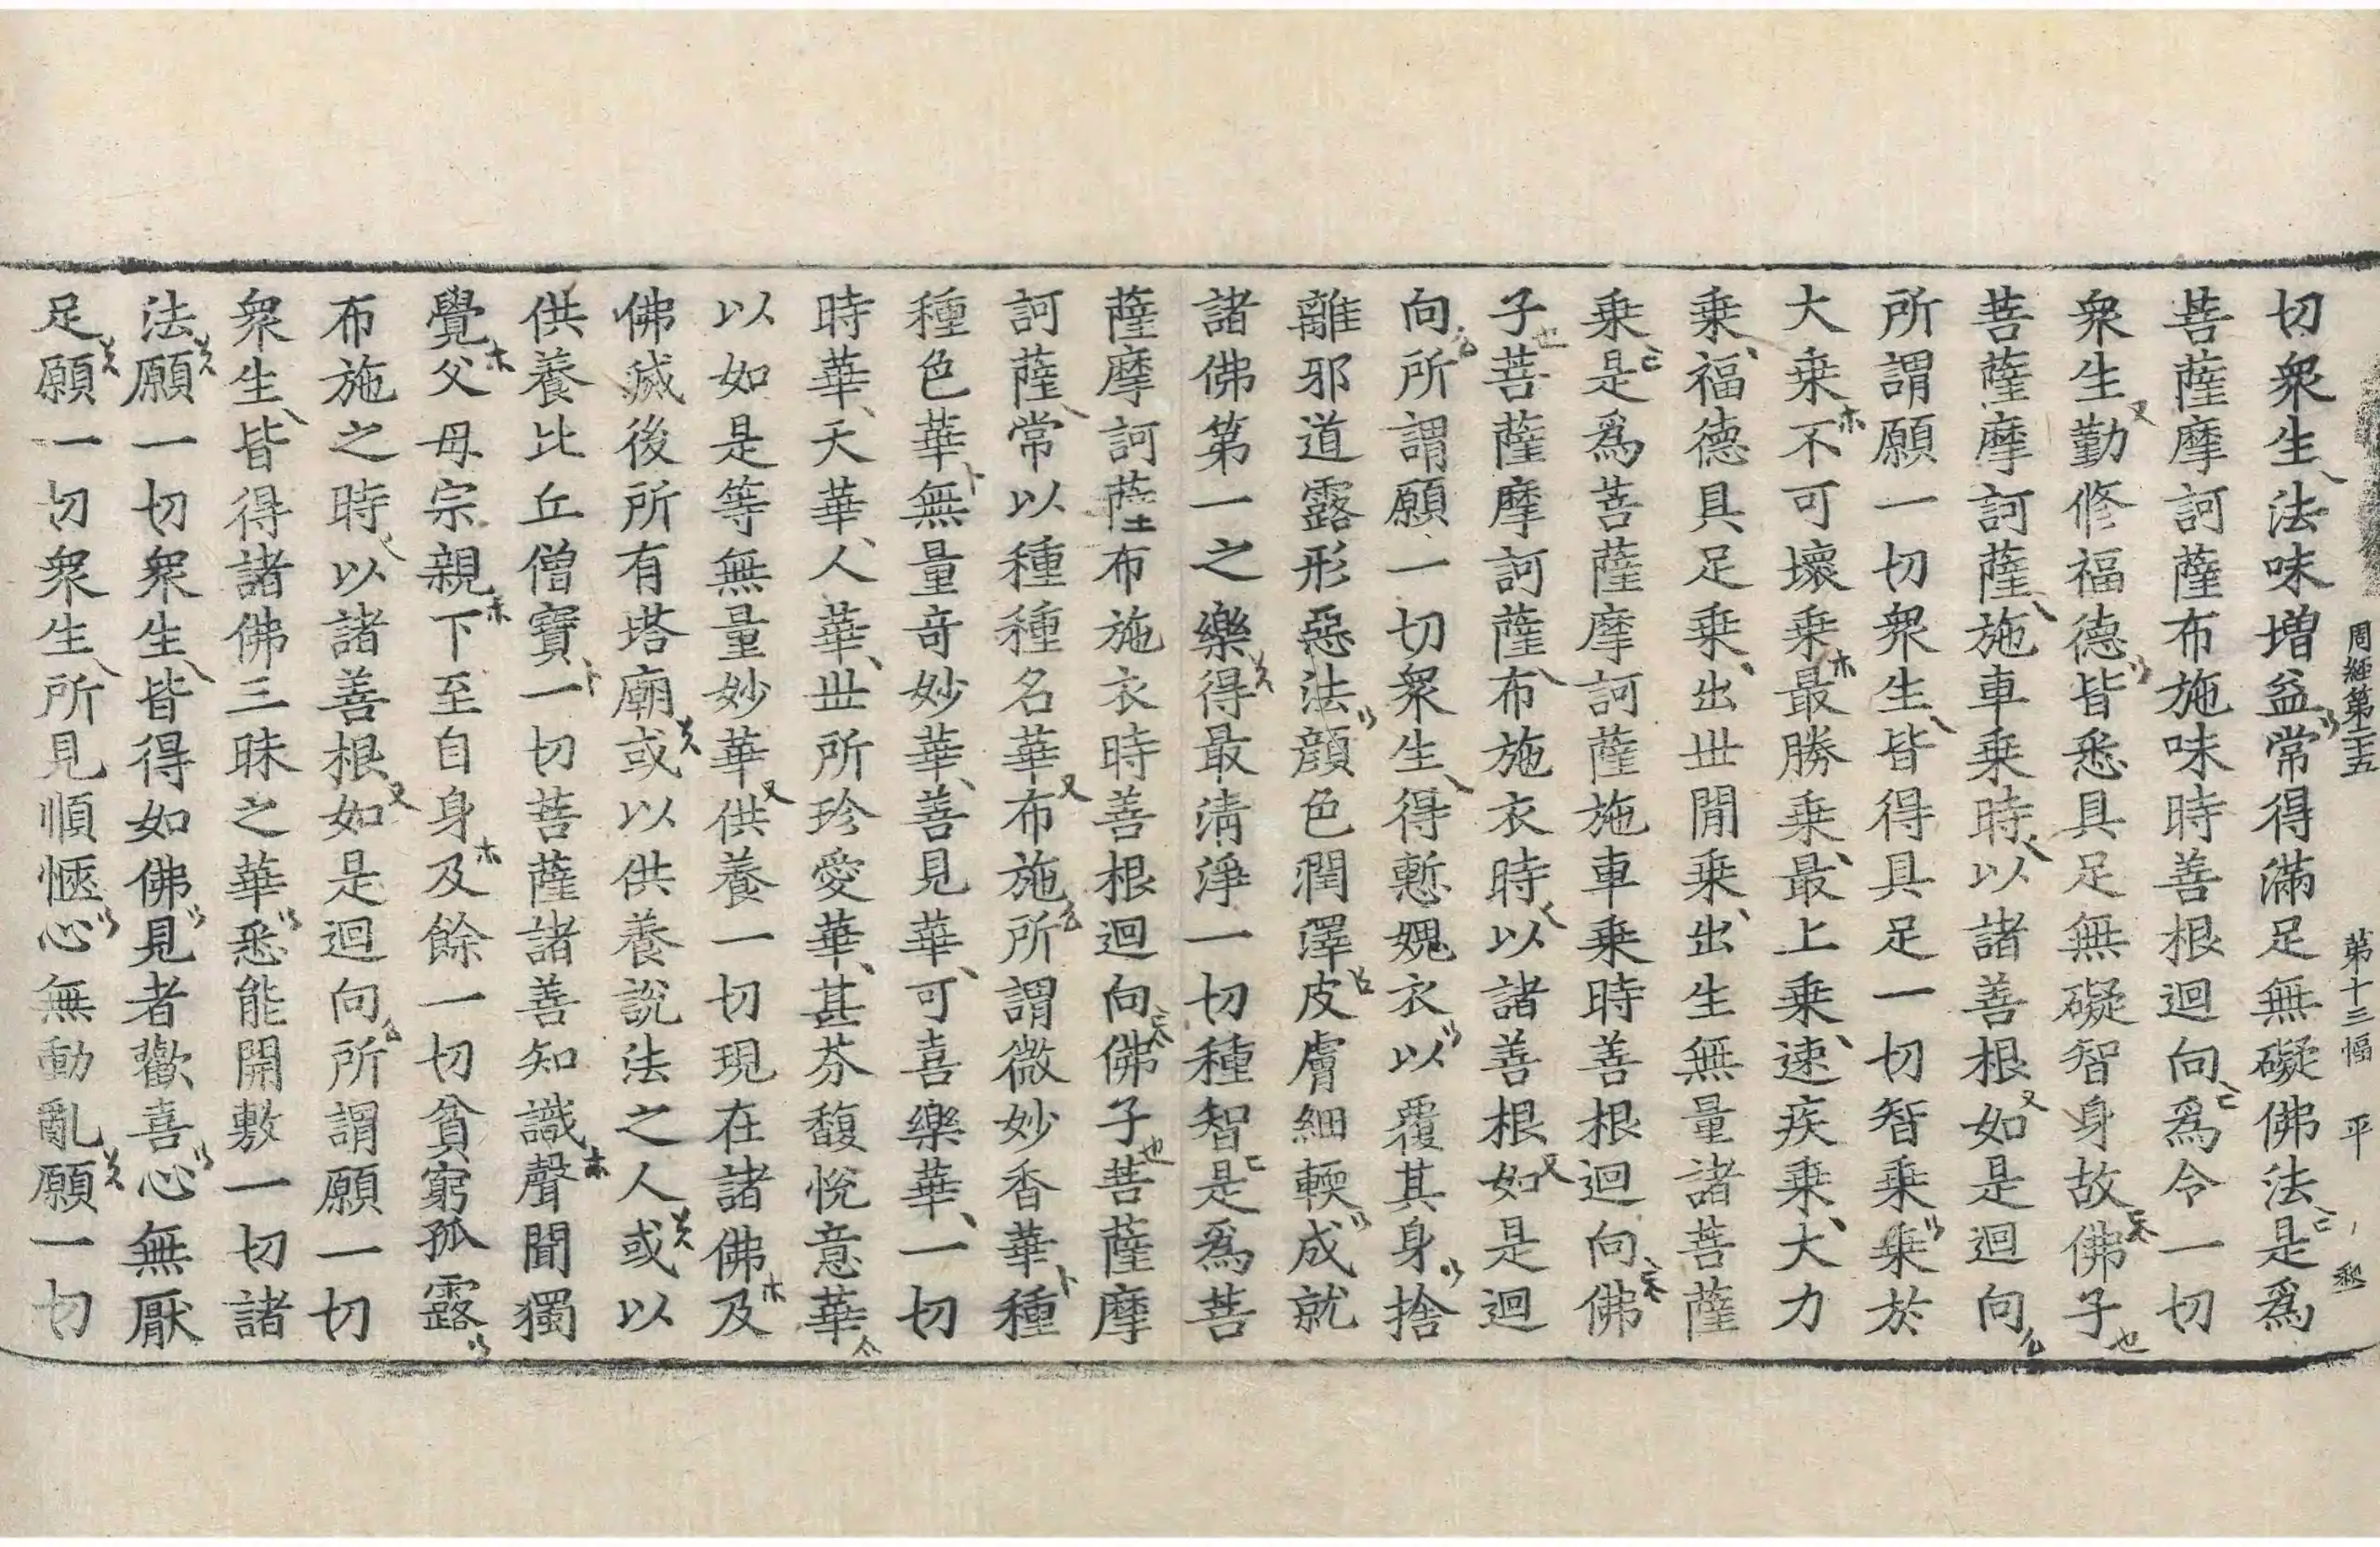 周經第二十五 第十三幅 平
切衆生法味增益常得滿足無礙佛法是爲
菩薩摩訶薩布施味時善根迴向爲令一切
衆生勤修福德皆悉具足無礙智身故佛子
菩薩摩訶薩施車乗時以諸善根如是迴向
所謂願一切衆生皆得具足一切智乗乗於
大乗不可壞乗最勝乗最上乗速疾乗大力
乗福德具足乗出世閒乗出生無量諸菩薩
乗是爲菩薩摩訶薩施車乗時善根迴向佛
子菩薩摩訶薩布施衣時以諸善根如是迴
向所謂願一切衆生得慙媿衣以覆其身捨
離邪道露形惡法顔色潤澤皮膚細輭成就
諸佛第一之樂得最清淨一切種智是爲菩
薩摩訶薩布施衣時善根迴向佛子菩薩摩
訶薩常以種種名華布施所謂微妙香華種
種色華無量奇妙華善見華可喜樂華一切
時華天華人華世所珍愛華甚芬馥悅意華
以如是等無量妙華供養一切現在諸佛及
佛滅後所有塔廟或以供養說法之人或以
供養比丘僧寶一切菩薩諸善知識聲聞獨
覺父母宗親下至自身及餘一切貧窮孤露
布施之時以諸善根如是迴向所謂願一切
衆生皆得諸佛三昧之華悉能開敷一切諸
法願一切衆生皆得如佛見者歡喜心無厭
足願一切衆生所見順愜心無動亂願一切